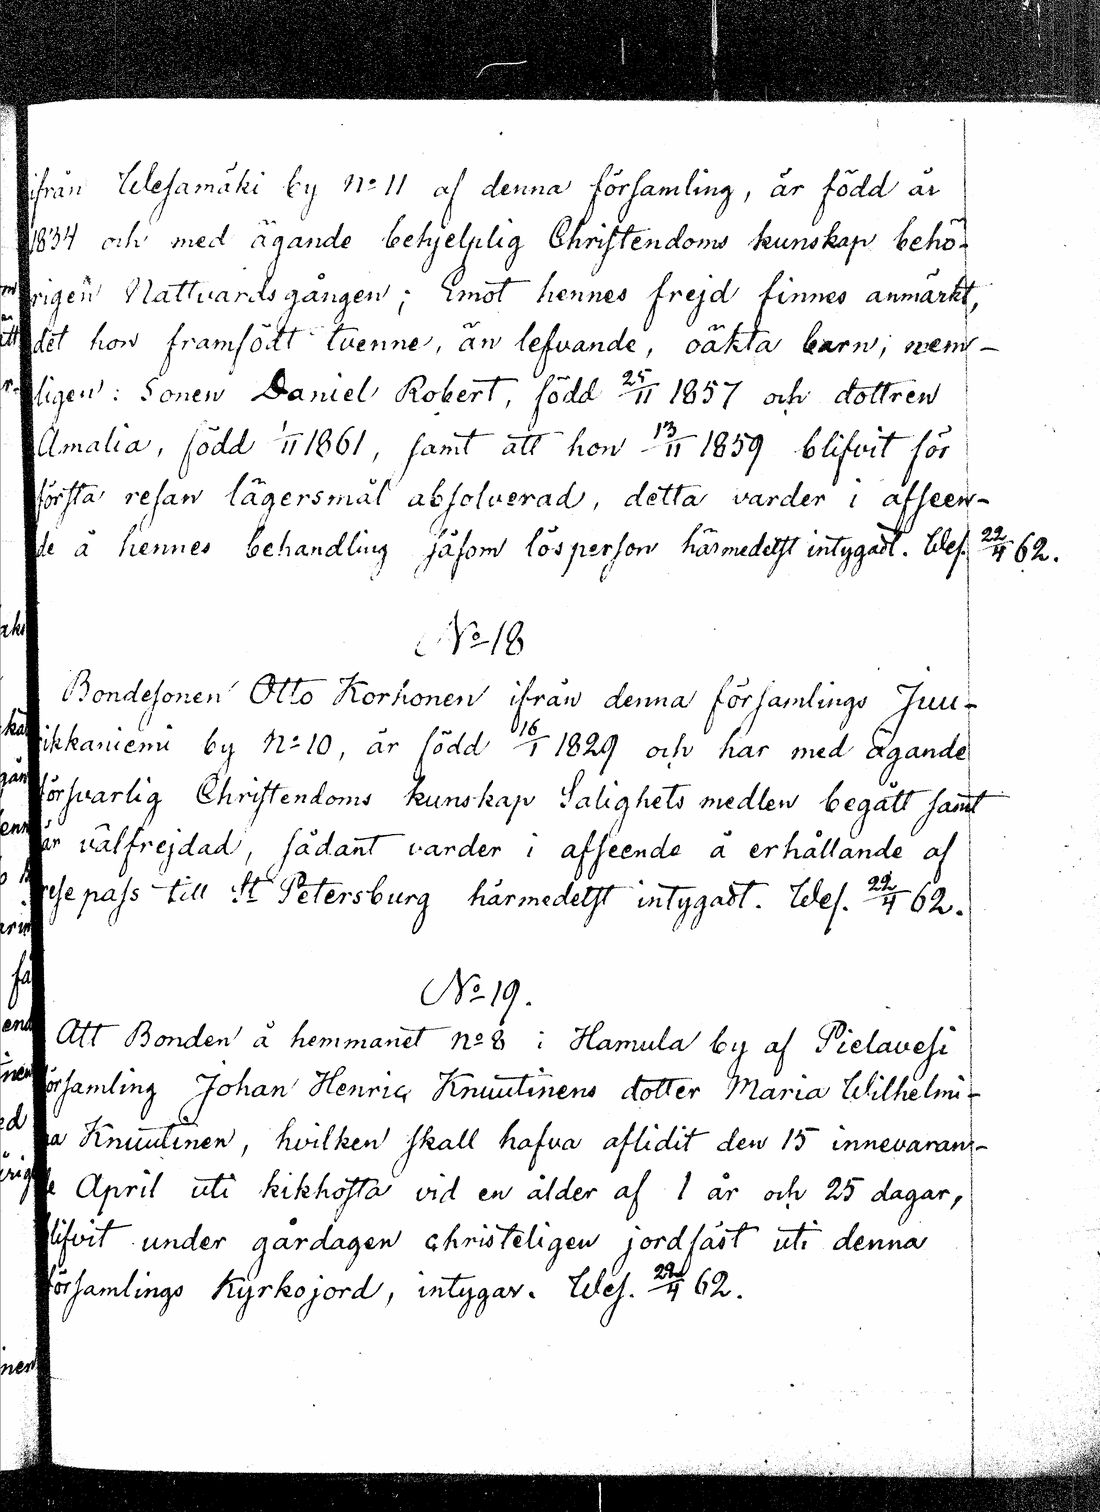 ifrån Wesamäki by No 11 af denna församling, är född år
1834 och med ägande behjelplig Christendoms kunskap behö-
rigen Nattvardsgången; Emot hennes frejd finnes anmärkt,
det hon framfödt tvenne, än lefvande, oäkta barn; nem-
ligen: Sonen Daniel Robert, född 25/11 1857 och dottren
Amalia, född 1/11 1861, samt att hon 13/11 1859 blifvit för
första resan lägersmål absolverad, detta varder i afseen-
de å hennes behandling såsom lösperson härmedelst intygadt. Wes. 22/4 62.
No 18
Bondesonen Otto Korhonen ifrån denna församlings Juu-
rikkaniemi by No 10, är född 16/1 1829 och har med ägande
försvarlig Christendoms kunskap Salighets medlen begått samt
är välfrejdad, sådant varder i afseende å erhållande af
rese pass till St Petersburg härmedelst intygadt. Wes. 22/4 62.
No 19.
Att Bonden å hemmanet No 8 i Hamula by af Pielavesi
församling Johan Henric Knuutinens dotter Maria Wilhelmi-
na Knuutinen, hvilken skall hafva aflidit den 15 innevaran-
de April uti kikhosta vid en ålder af 1 år och 25 dagar,
blifvit under gårdagen christeligen jordfäst uti denna
församlings Kyrkojord, intygar. Wes. 22/4 62.